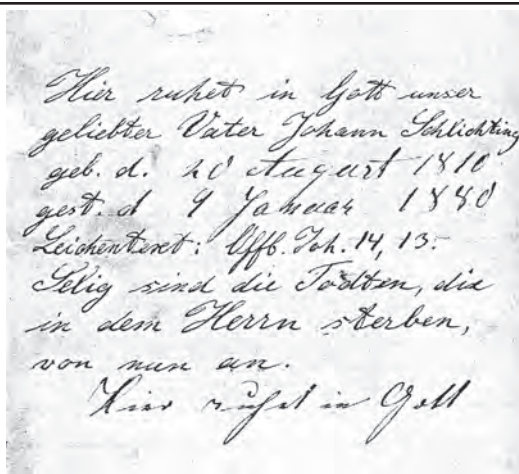 Hier ruhet in Gott unser
geliebter Vater Johann Schlichting
geb. d. 20 August 1810
gest. d 9 Januar 1880
Leichentext: Offb. Joh. 14, 13.-
Selig sind die Todten, die
in dem Herrn sterben,
von nun an.
Hier ruhet in Gott